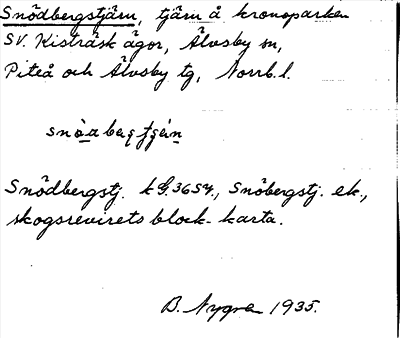 Snödbergstjärn, tjärn å kronoparken
SV. Kisträsk ägor, Älvsby sn,
Piteå och Älvsby tg, Norrb. l.
Snödbergstj. k G. 36 SV., Snöbergstj. ek.,
skogsrevirets block-karta.
B. Nygren 1935.